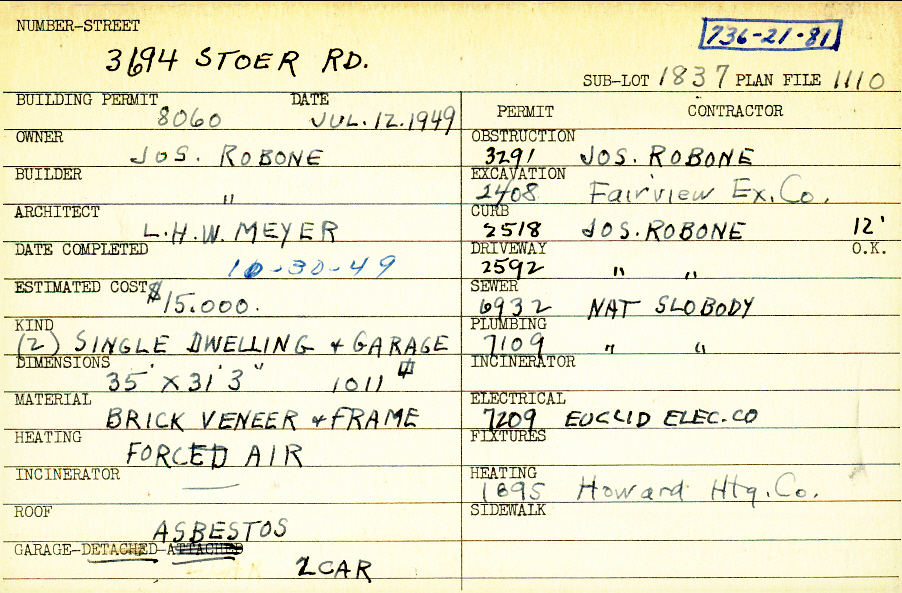 NUMBER-STREET
736-21-81
3694 STOER RD.
SUB-LOT 1837 PLAN FILE 1110
BUILDING PERMIT DATE
8060 JUL. 12. 1949
OWNER
JOS. ROBONE
BUILDER
"
ARCHITECT
L.H.W. MEYER
DATE COMPLETED
10-30-49
ESTIMATED COST
$15.000.
KIND
(2) SINGLE DWELLING & GARAGE
DIMENSIONS
35' X 31' 3" 1011
MATERIAL
BRICK VENEER & FRAME
HEATING
FORCED AIR
INCINERATOR
ROOF
ASBESTOS
GARAGE-DETACHED-ATTACHED
2 CAR
PERMIT CONTRACTOR
OBSTRUCTION
3291 JOS. ROBONE
EXCAVATION
2408 Fairview Ex. Co.
CURB
2518 JOS. ROBONE 12'
DRIVEWAY O.K.
2592 " "
SEWER
6932 NAT SLOBODY
PLUMBING
7109 " "
INCINERATOR
ELECTRICAL
7209 EUCLID ELEC. CO
FIXTURES
HEATING
1895 Howard Htg. Co.
SIDEWALK